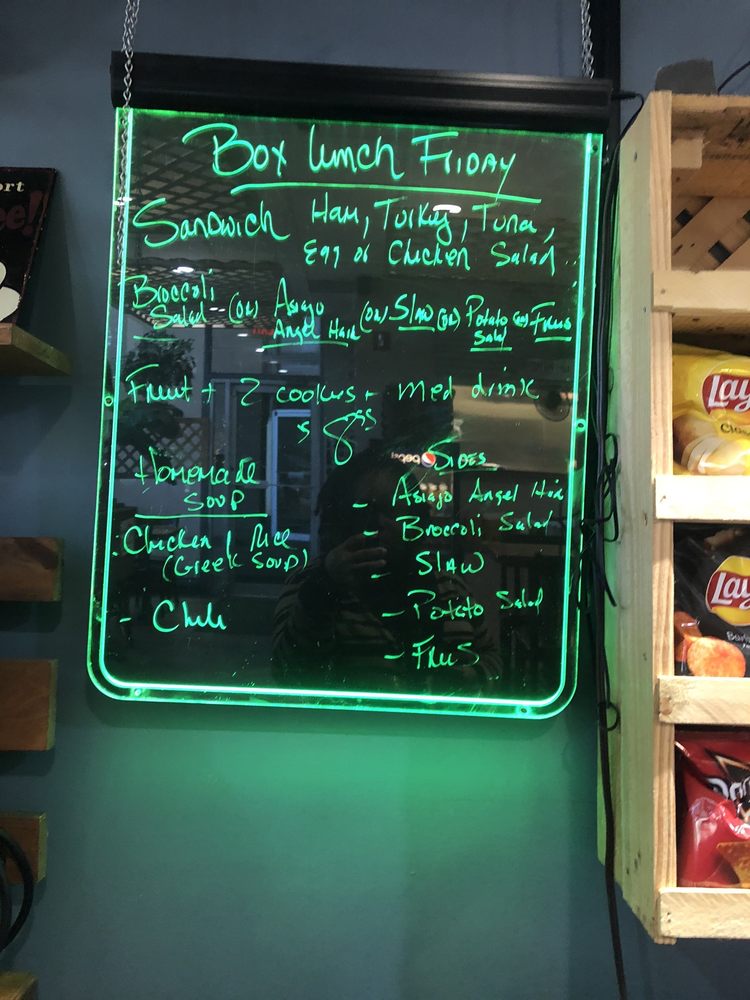 Box Lunch Friday
Sandwich Ham, Turkey, Tuna,
Egg or Chicken Salad
Broccoli Salad (or) Asiago Angel Hair (or) Slaw (or) Potato Salad (or) Fries
Fruit + 2 cookies + med drink
$ 8.99
Homemade Soup
Chicken / Rice
(Greek Soup)
- Chili
Sides
- Asiago Angel Hair
- Broccoli Salad
- Slaw
- Potato Salad
- Fries
pepsi
ort
ee!
Lay
Clas
Lay
Bar
Dor